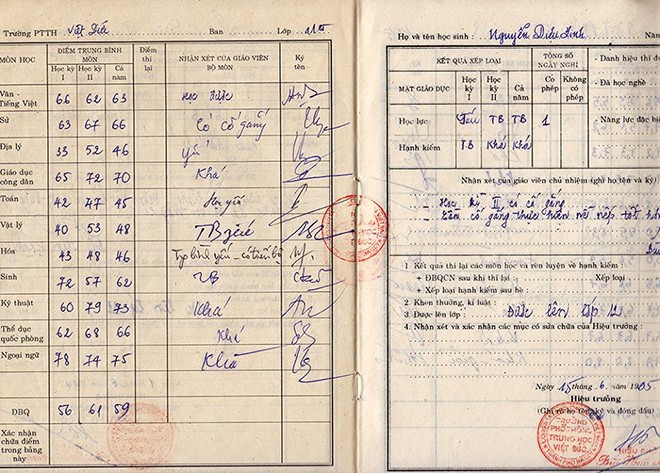 Trường PTTH Việt Đức Ban Lớp 11
MÔN HỌC
ĐIỂM TRUNG BÌNH MÔN
Điểm thi lại
NHẬN XÉT CỦA GIÁO VIÊN BỘ MÔN
Ký tên
Học kỳ I
Học kỳ II
Cả năm
Văn - Tiếng Việt 66 62 63 Học được
Sử 63 67 66 Có cố gắng
Địa lý 33 52 46 yếu
Giáo dục công dân 65 72 70 Khá
Toán 42 47 45 Hơi yếu
Vật lý 40 53 48 TB yếu
Hóa 43 48 46
Sinh 72 57 62 TB
Kỹ thuật 60 79 73 Khá
Thể dục quốc phòng 62 68 66 Khá
Ngoại ngữ 78 74 75 Khá
ĐBQ 56 61 59
Xác nhận chữa điểm trong bảng này
Họ và tên học sinh: Nguyễn Diệu Linh Nă
KẾT QUẢ XẾP LOẠI
TỔNG SỐ NGÀY NGHỈ
MẶT GIÁO DỤC
Học kỳ I
Học kỳ II
Cả năm
Có phép
Không có phép
Học lực Yếu TB TB 1
Hạnh kiểm TB Khá Khá
- Danh hiệu thi đu
- Đã học nghề
- Năng lực đặc biệ
Nhận xét của giáo viên chủ nhiệm (ghi họ tên và ký)
- Học kỳ II có cố gắng
- cố gắng thực hiện nề nếp tốt
1. Kết quả thi lại các môn học và rèn luyện về hạnh kiểm :
+ ĐBQCN sau khi thi lại : Xếp loại
+ Xếp loại hạnh kiểm sau hè :
2. Khen thưởng, kỉ luật :
3. Được lên lớp : Được lên lớp 12
4. Nhận xét và xác nhận các mục có sửa chữa của Hiệu trưởng :
Ngày 15 tháng 6 năm 1995
Hiệu trưởng
(Ghi rõ họ tên, ký và đóng dấu)
TRƯỜNG
PHỔ THÔNG
TRUNG HỌC
VIỆT ĐỨC